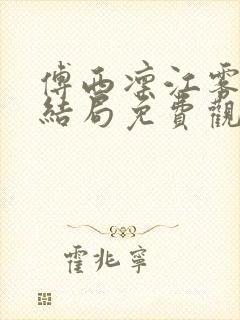 傅西凛江雾
結局免費觀
霍兆寧